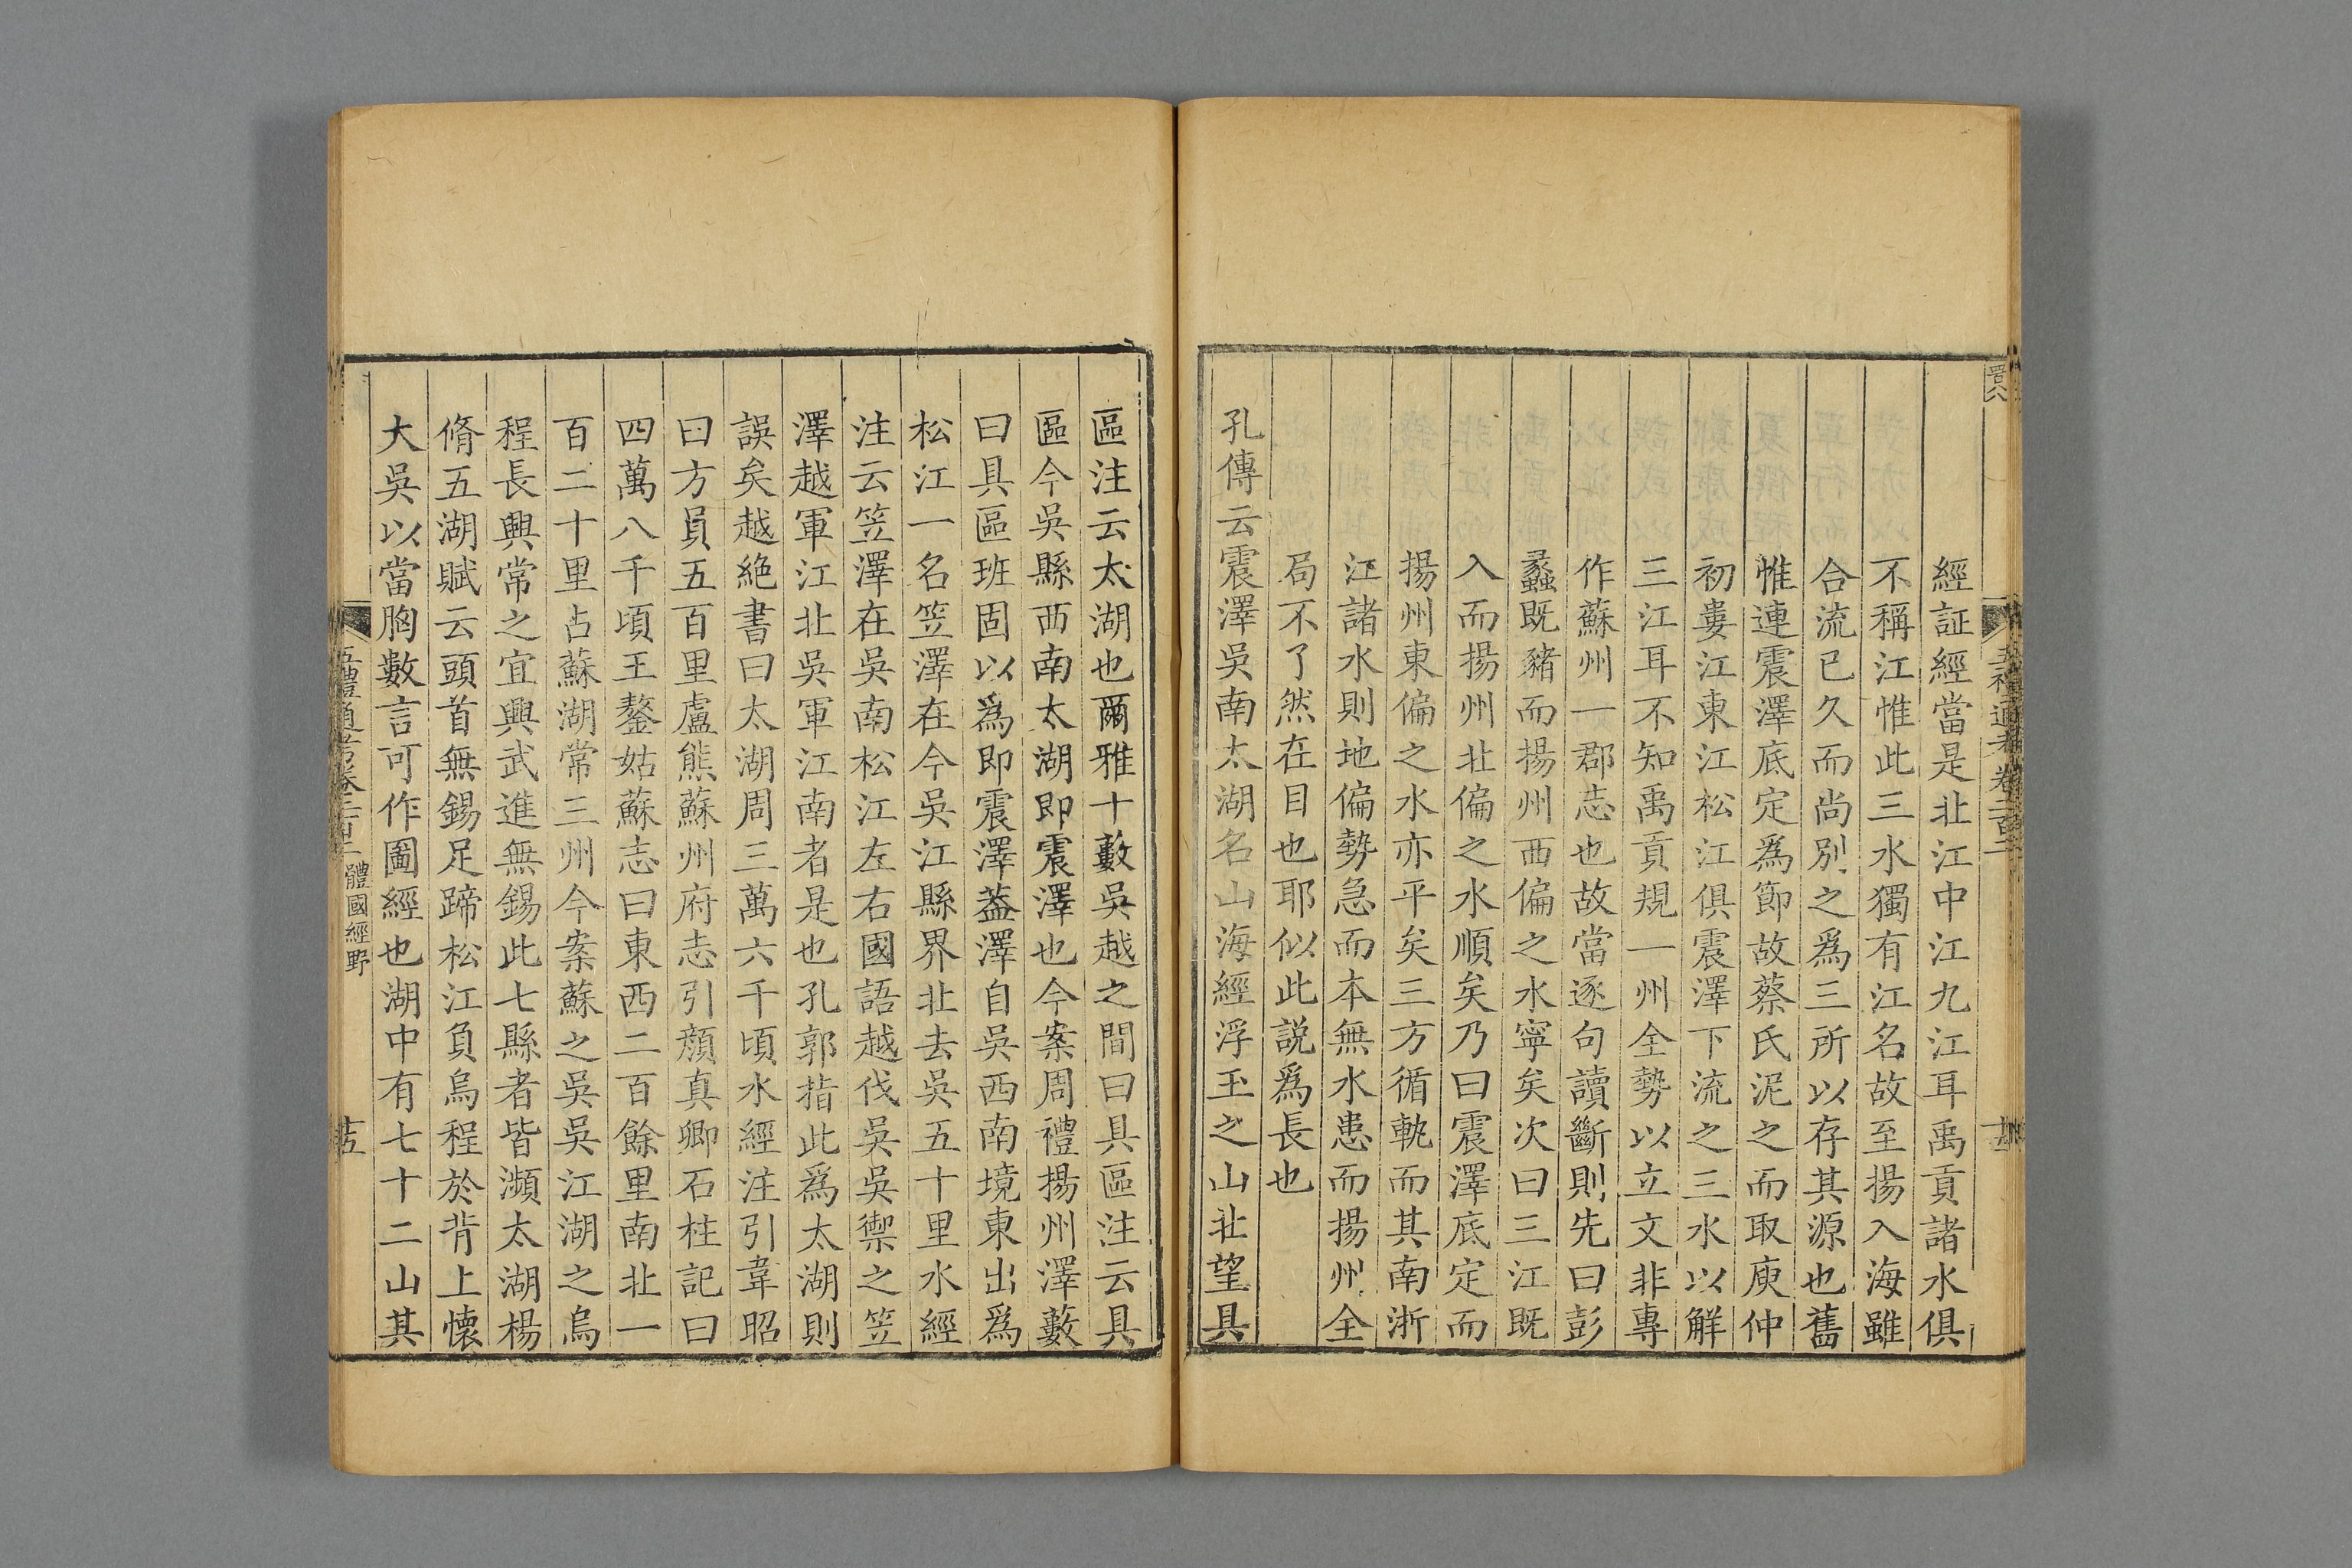 經証經當是北江中江九江耳禹貢諸水俱
不稱江惟此三水獨有江名故至揚入海雖
合流已久而尚別之爲三所以存其源也舊
惟連震澤底定爲節故蔡氏泥之而取庾仲
初婁江東江松江俱震澤下流之三水以解
三江耳不知禹貢規一州全勢以立文非專
作蘇州一郡志也故當逐句讀斷則先曰彭
蠡既豬而揚州西偏之水寧矣次曰三江既
入而揚州北偏之水順矣乃曰震澤底定而
揚州東偏之水亦平矣三方循軌而其南浙
江諸水則地偏勢急而本無水患而揚州全
局不了然在目也耶似此説爲長也
孔傳云震澤吳南太湖名山海經浮玉之山北望具
區注云太湖也爾雅十藪吳越之間曰具區注云具
區今吳縣西南太湖即震澤也今案周禮揚州澤藪
曰具區班固以爲即震澤葢澤自吳西南境東出爲
松江一名笠澤在今吳江縣界北去吳五十里水經
注云笠澤在吳南松江左右國語越伐吳吳禦之笠
澤越軍江北吳軍江南者是也孔郭指此爲太湖則
誤矣越絶書曰太湖周三萬六千頃水經注引韋昭
曰方員五百里盧熊蘇州府志引顏真卿石柱記曰
四萬八千頃王鏊姑蘇志曰東西二百餘里南北一
百二十里占蘇湖常三州今案蘇之吳吳江湖之烏
程長興常之宜興武進無錫此七縣者皆瀕太湖楊
脩五湖賦云頭首無錫足蹄松江負烏程於背上懷
大吳以當胸數言可作圖經也湖中有七十二山其
體國經野